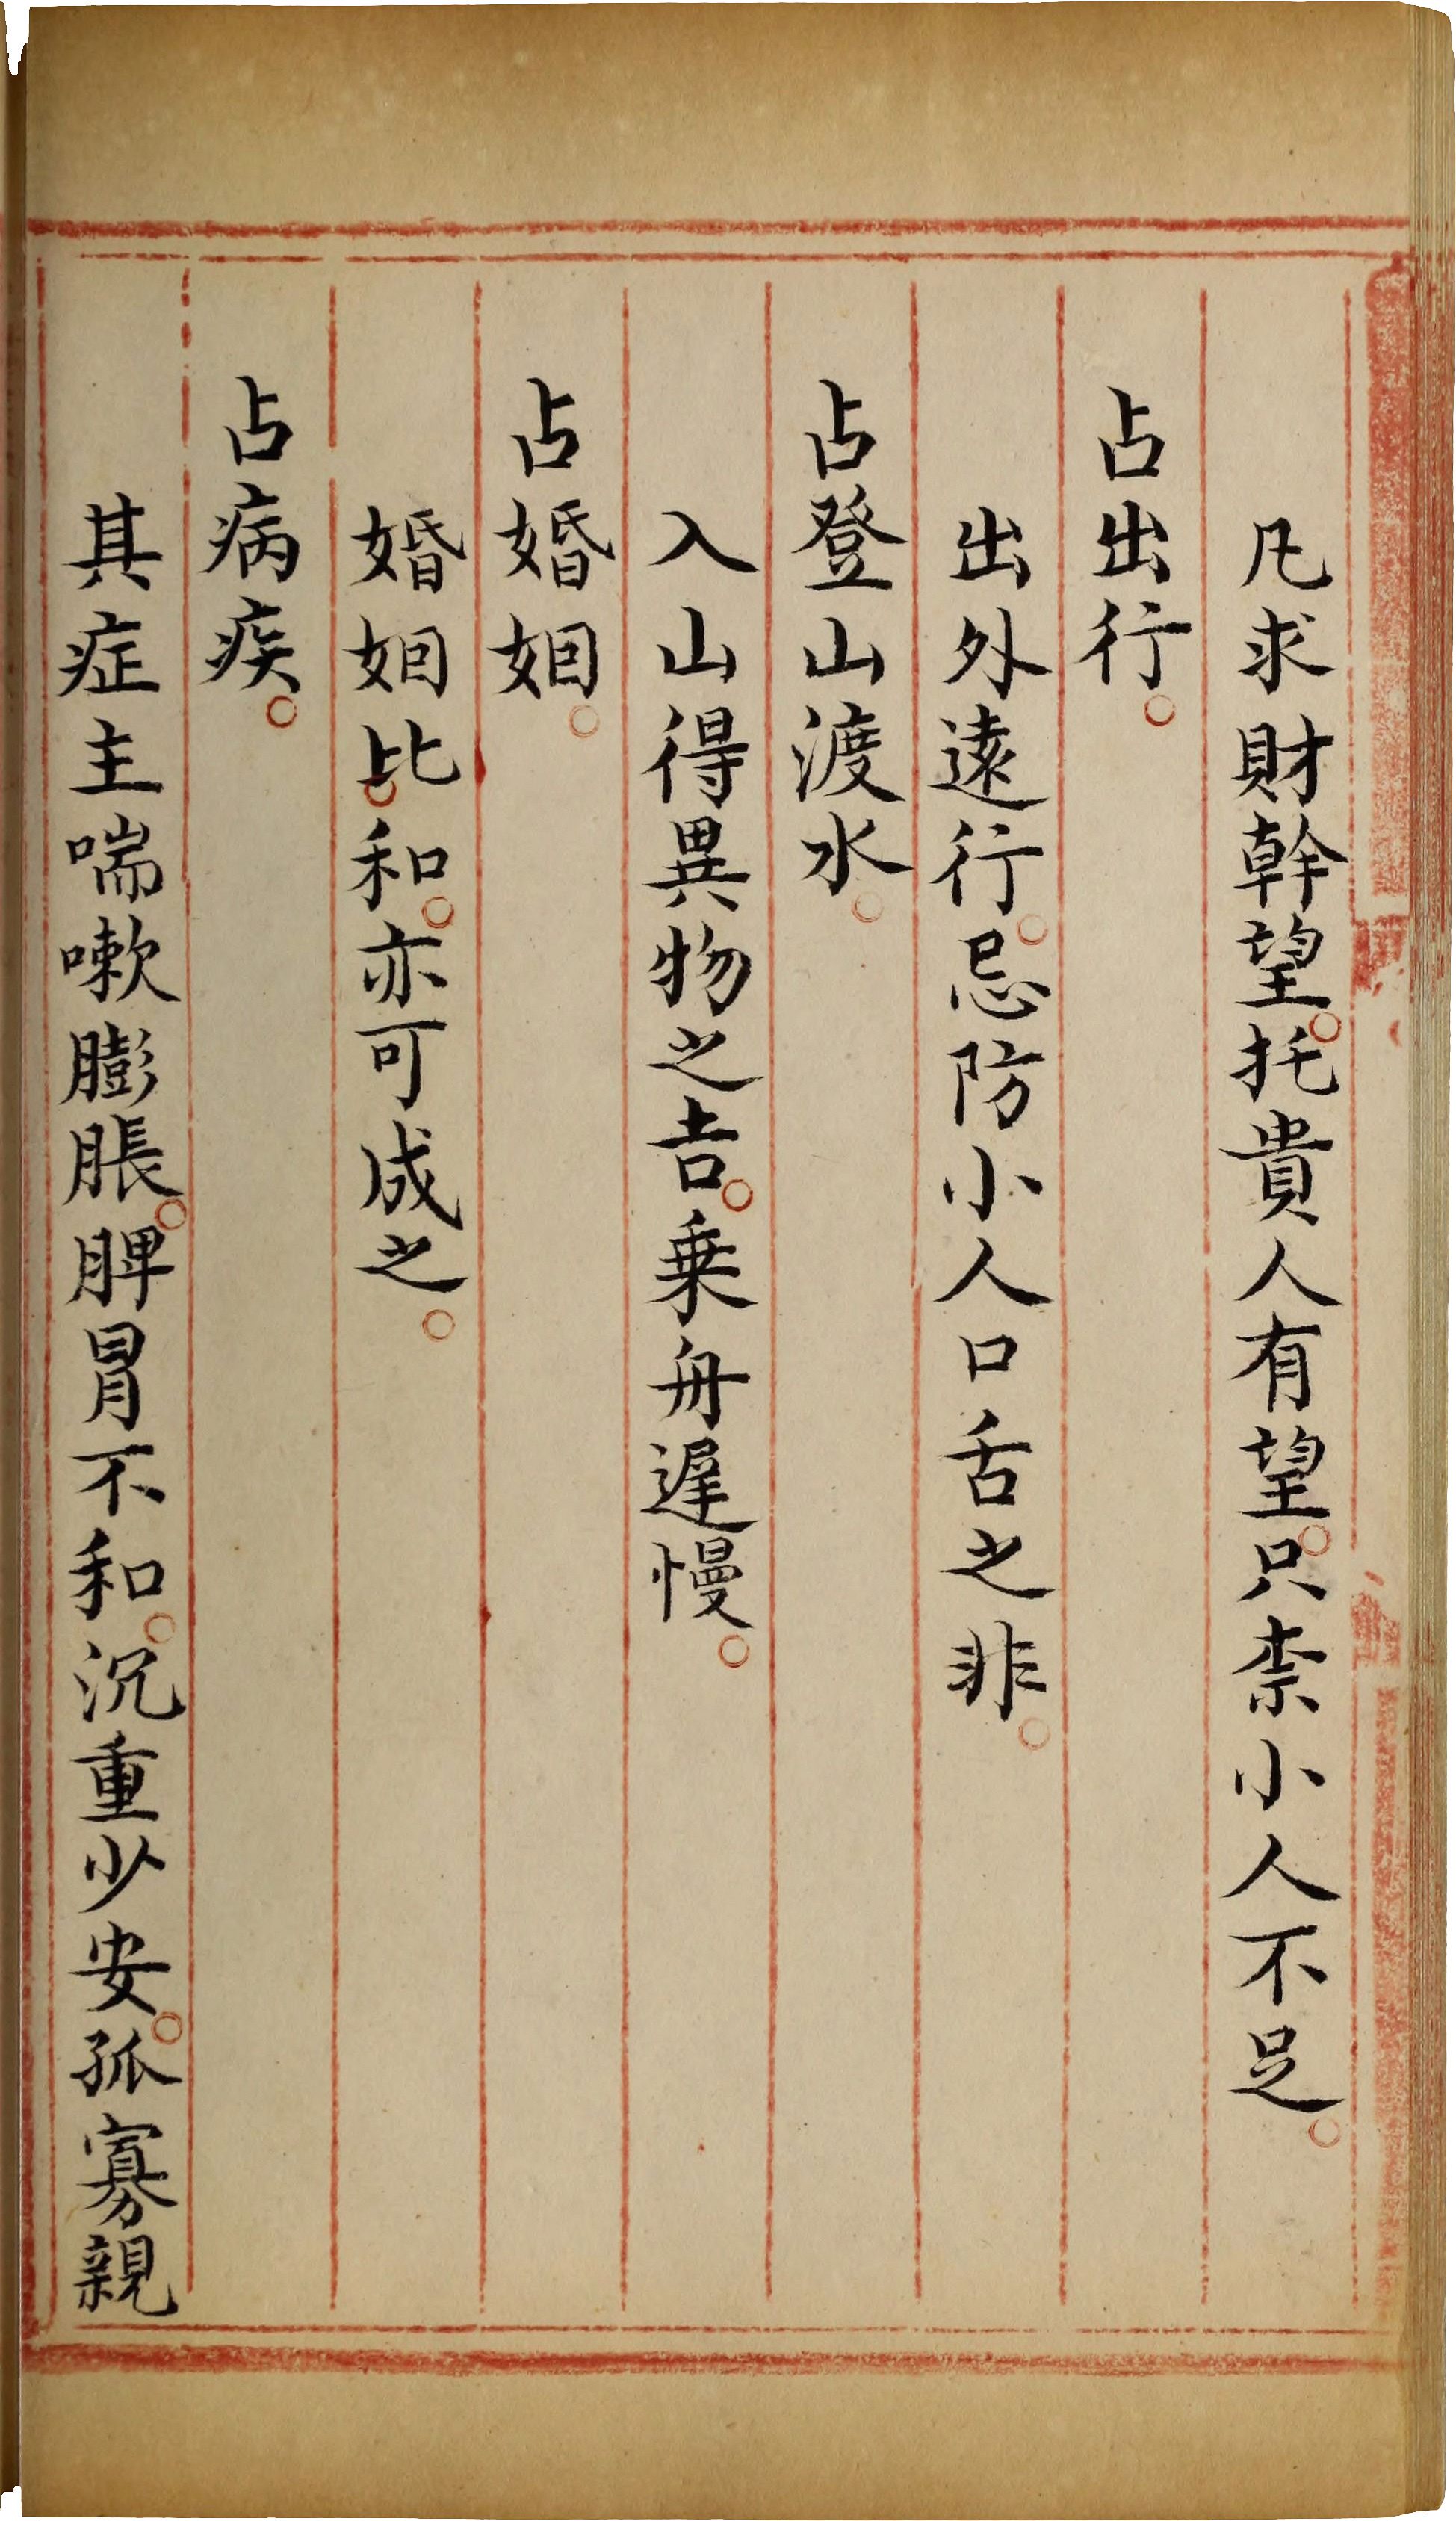 凡求財幹望。托貴人有望。只柰小人不足。
占出行。
出外遠行。忌防小人口舌之非。
占登山渡水。
入山得異物之吉。乗舟遲慢。
占婚姻。
婚姻比。和。亦可成之。
占病疾。
其症主喘嗽膨脹。脾胃不和。沉重少安。孤寡親